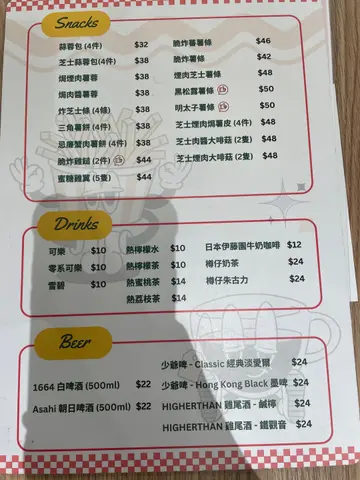 Snacks
蒜蓉包 (4件) $32
芝士蒜蓉包(4件) $38
焗煙肉薯蓉 $38
焗肉醬薯蓉 $38
炸芝士條 (4條) $38
三角薯餅 (4件) $38
忌廉蟹肉薯餅 (4件) $38
脆炸雞鎚 (2件) $44
蜜糖雞翼 (5隻) $44
脆炸蕃薯條 $46
脆炸薯條 $42
煙肉芝士薯條 $48
黑松露薯條 $50
明太子薯條 $50
芝士煙肉焗薯皮 (4件) $48
芝士肉醬大啡菇 (2隻) $48
芝士煙肉大啡菇 (2隻) $48
Drinks
可樂 $10
零系可樂 $10
雪碧 $10
熱檸檬水 $10
熱檸檬茶 $10
熱蜜桃茶 $14
熱荔枝茶 $14
日本伊藤園牛奶咖啡 $12
樽仔奶茶 $24
樽仔朱古力 $24
Beer
1664 白啤酒 (500ml) $22
Asahi 朝日啤酒 (500ml) $22
少爺啤 - Classic 經典淡愛爾 $24
少爺啤 - Hong Kong Black 墨啤 $24
HIGHERTHAN 雞尾酒 - 鹹檸 $24
HIGHERTHAN 雞尾酒 - 鐵觀音 $24